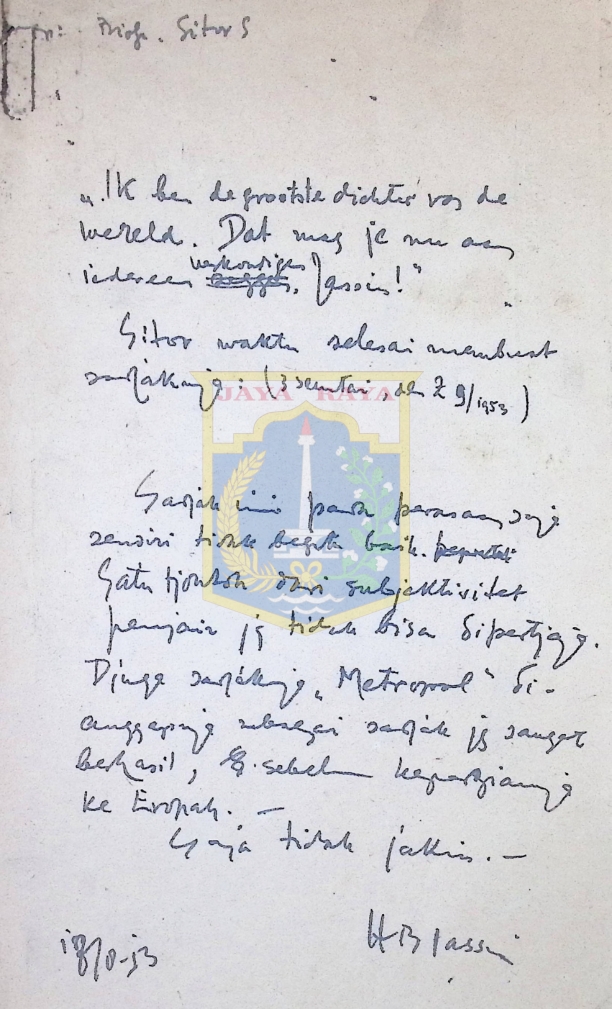 Sitor S
„Ik ben de grootste dichter van de
wereld. Dat mag je nu aan
iedereen verkondigen, Jassin!"
Sitor waktu selesai membuat
sadjaknja: (3 , 9/1953)
JAYA RAYA
Sadjak ini pada perasaan saja
sendiri tidak begitu baik.
Satu tjontoh dari subjektivitet
penjair jg tidak bisa dipertjaja.
Djuga sadjaknja „Metropool" di-
anggapnja sebagai sadjak jg sangat
berhasil, sebelum kepergiannja
ke Eropah. —
Saja tidak jakin. —
HB Jassin